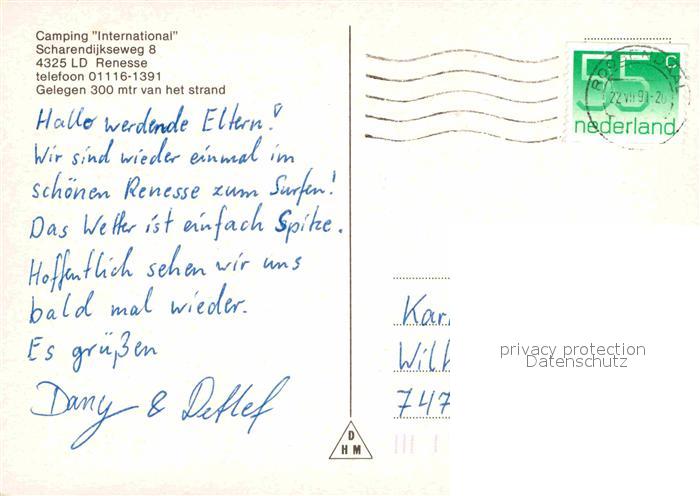 Camping "International"
Scharendijkseweg 8
4325 LD Renesse
telefoon 01116-1391
Gelegen 300 mtr van het strand
Hallo werdende Eltern!
Wir sind wieder einmal im
schönen Renesse zum Surfen!
Das Wetter ist einfach Spitze.
Hoffentlich sehen wir uns
bald mal wieder.
Es grüßen
Dany & Detlef
55 c
nederland
22 VII 91-20
Kar
Wil
747
privacy protection
Datenschutz
D
H M